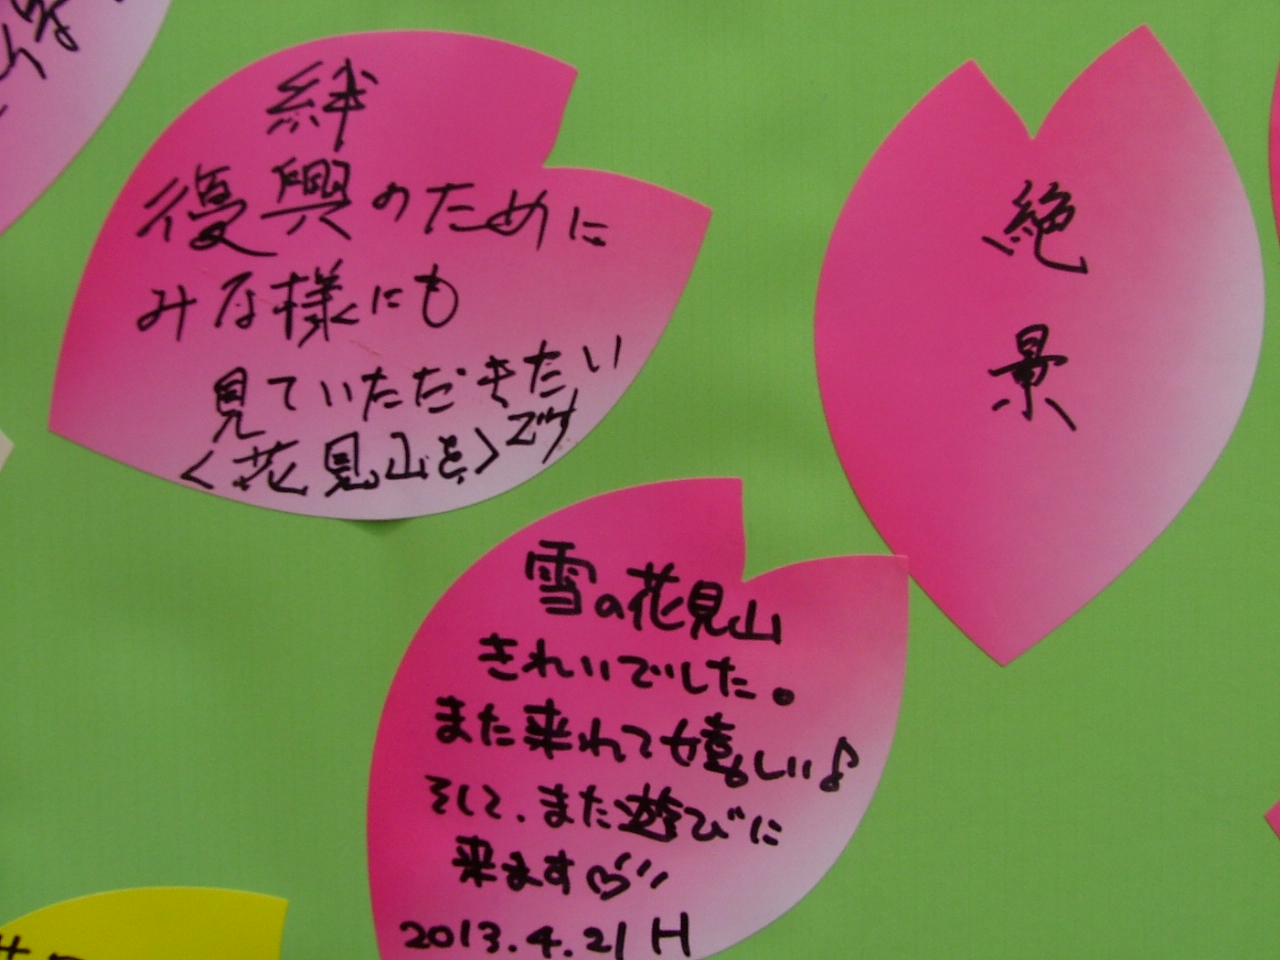 絆
復興のために
みな様にも
見ていただきたい
<花見山を>です
絶
景
雪の花見山
きれいでした。
また来れて嬉しい♪
そして、また遊びに
来ます♡
2013.4.21 H